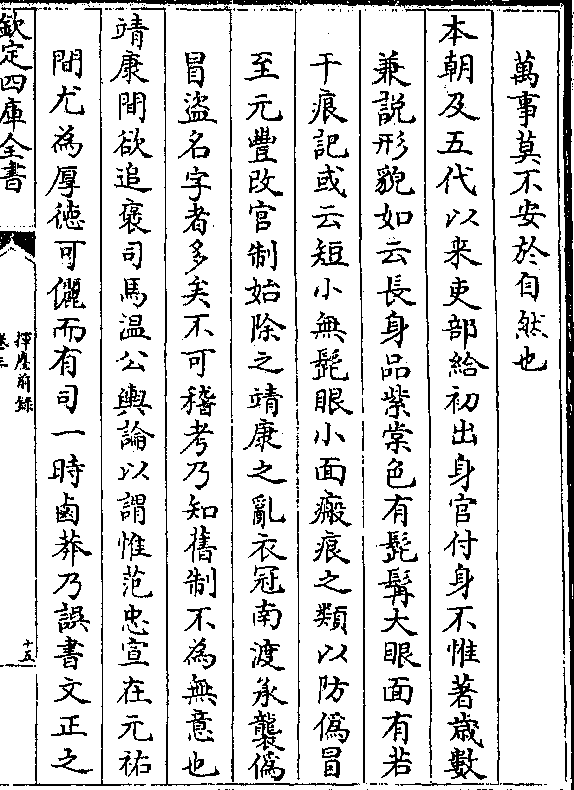 萬事莫不安於自然也
本朝及五代以来吏部給初出身官付身不惟著歳數
兼説形貌如云長身品紫棠色有髭髯大眼面有若
干痕記或云短小無髭眼小面瘢痕之類以防偽冒
至元豐改官制始除之靖康之亂衣冠南渡承襲偽
冒盗名字者多矣不可稽考乃知舊制不為無意也
靖康間欲追褒司馬温公輿論以謂惟范忠宣在元祐
間尤為厚徳可儷而有司一時鹵莽乃誤書文正之
欽定四庫全書
揮麈前録
卷三
十五